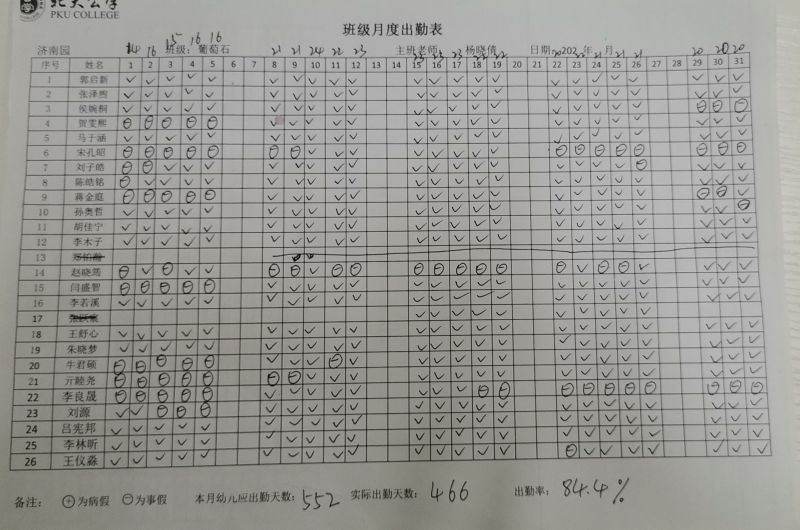 北大公学
PKU COLLEGE
班级月度出勤表
济南园 班级：葡萄石 主班老师： 杨晓倩 日期：202 年 月
14 16 15 16 16 21 21 24 22 23 23 23 22 22 20 21 21 21 20 20 20
序号 姓名 1 2 3 4 5 6 7 8 9 10 11 12 13 14 15 16 17 18 19 20 21 22 23 24 25 26 27 28 29 30 31
1 郭启新 ✓ ✓ ✓ ✓ ✓ ✓ ✓ ✓ ✓ ✓ ✓ ✓ ✓ ✓ ✓ ✓ ✓ ✓ ✓ ✓ ✓ ✓ ✓
2 张泽煦 ✓ ✓ ✓ ✓ ✓ ✓ ✓ ✓ ✓ ✓ ✓ ✓ ✓ ✓ ✓ ✓ ✓ ✓ ✓ ✓ ✓ ✓ ✓
3 侯婉桐 ✓ ✓ ✓ ✓ ✓ ✓ ✓ ✓ ✓ ✓ ✓ ✓ ✓ ✓ ✓ ✓ ✓ ✓ ✓ ✓ ⊖ ⊖ ⊖
4 贺雯熙 ⊖ ⊖ ⊖ ⊖ ⊖ ✓ ✓ ✓ ✓ ✓ ✓ ✓ ✓ ✓ ✓ ✓ ✓ ✓ ✓ ✓ ✓ ✓ ✓
5 马子涵 ✓ ✓ ✓ ✓ ✓ ✓ ✓ ✓ ✓ ✓ ✓ ✓ ✓ ✓ ✓ ✓ ✓ ✓ ✓ ✓ ✓ ✓ ✓
6 宋孔昭 ⊖ ⊖ ⊖ ⊖ ⊖ ⊖ ⊖ ✓ ✓ ✓ ✓ ✓ ✓ ✓ ✓ ⊖ ⊖ ⊖ ⊖ ⊖ ⊖ ⊖ ⊖
7 刘子皓 ⊖ ⊖ ✓ ✓ ✓ ✓ ✓ ✓ ✓ ✓ ✓ ✓ ✓ ✓ ✓ ✓ ✓ ✓ ✓ ⊖ ✓ ✓ ✓
8 陈皓铭 ⊖ ✓ ✓ ✓ ✓ ✓ ✓ ✓ ✓ ✓ ✓ ✓ ✓ ✓ ✓ ✓ ✓ ✓ ✓ ✓ ✓ ✓ ✓
9 蒋金庭 ⊖ ⊖ ⊖ ⊖ ⊖ ✓ ✓ ✓ ✓ ✓ ✓ ✓ ✓ ✓ ✓ ✓ ✓ ✓ ✓ ✓ ⊖ ⊖ ✓
10 孙奥哲 ✓ ✓ ✓ ✓ ✓ ✓ ✓ ✓ ✓ ✓ ✓ ✓ ✓ ✓ ✓ ✓ ✓ ✓ ✓ ✓ ✓ ✓ ⊖
11 胡佳宁 ✓ ✓ ✓ ✓ ✓ ✓ ✓ ✓ ✓ ✓ ✓ ✓ ✓ ✓ ✓ ✓ ✓ ✓ ✓ ✓ ✓ ✓ ✓
12 李木子 ✓ ✓ ✓ ✓ ✓ ✓ ✓ ✓ ✓ ✓ ✓ ✓ ✓ ✓ ✓ ✓ ✓ ✓ ✓ ✓ ✓ ✓ ✓
13
14 赵晓筠 ⊖ ✓ ⊖ ✓ ✓ ⊖ ⊖ ✓ ⊖ ⊖ ⊖ ⊖ ⊖ ⊖ ⊖ ⊖ ✓ ⊖ ⊖ ✓ ✓ ✓ ✓
15 闫盛智 ⊖ ⊖ ⊖ ⊖ ⊖ ✓ ✓ ✓ ✓ ✓ ✓ ✓ ✓ ✓ ✓ ✓ ✓ ✓ ✓ ✓ ✓ ✓ ✓
16 李若溪 ✓ ✓ ✓ ✓ ✓ ✓ ✓ ✓ ✓ ✓ ✓ ✓ ✓ ✓ ✓ ✓ ✓ ✓ ✓ ✓ ✓ ✓ ✓
17
18 王舒心 ✓ ✓ ✓ ✓ ✓ ✓ ✓ ✓ ✓ ✓ ✓ ✓ ✓ ✓ ✓ ✓ ✓ ✓ ✓ ✓ ✓ ✓ ✓
19 朱晓梦 ✓ ✓ ✓ ✓ ✓ ✓ ✓ ✓ ✓ ✓ ✓ ✓ ✓ ✓ ✓ ✓ ✓ ✓ ✓ ✓ ✓ ✓ ✓
20 牛君硕 ⊖ ⊖ ⊖ ⊖ ⊖ ✓ ✓ ✓ ⊖ ✓ ✓ ✓ ✓ ✓ ✓ ✓ ✓ ✓ ✓ ✓ ✓ ✓ ✓
21 亓睦尧 ⊖ ⊖ ⊖ ⊖ ⊖ ⊖ ⊖ ✓ ✓ ✓ ✓ ✓ ✓ ✓ ✓ ✓ ✓ ✓ ✓ ✓ ✓ ✓ ✓
22 李良晟 ⊖ ⊖ ⊖ ⊖ ⊖ ✓ ✓ ✓ ✓ ✓ ✓ ✓ ✓ ⊖ ⊖ ⊖ ⊖ ⊖ ⊖ ⊖ ⊖ ⊖ ⊖
23 刘源 ✓ ✓ ⊖ ⊖ ⊖ ✓ ✓ ✓ ✓ ✓ ✓ ✓ ✓ ✓ ✓ ✓ ✓ ✓ ✓ ✓ ✓ ✓ ✓
24 吕宪邦 ✓ ✓ ✓ ✓ ✓ ✓ ✓ ✓ ✓ ✓ ✓ ✓ ✓ ✓ ✓ ✓ ✓ ✓ ✓ ✓ ✓ ✓ ✓
25 李林昕 ✓ ✓ ✓ ✓ ✓ ✓ ✓ ✓ ✓ ✓ ✓ ✓ ✓ ✓ ✓ ✓ ✓ ✓ ✓ ✓ ✓ ✓ ✓
26 王仪淼 ✓ ✓ ✓ ✓ ✓ ✓ ✓ ✓ ✓ ✓ ✓ ✓ ✓ ✓ ✓ ✓ ⊖ ✓ ✓ ✓ ✓ ✓ ✓
备注： ⊕为病假 ⊖为事假 本月幼儿应出勤天数：552 实际出勤天数：466 出勤率：84.4%